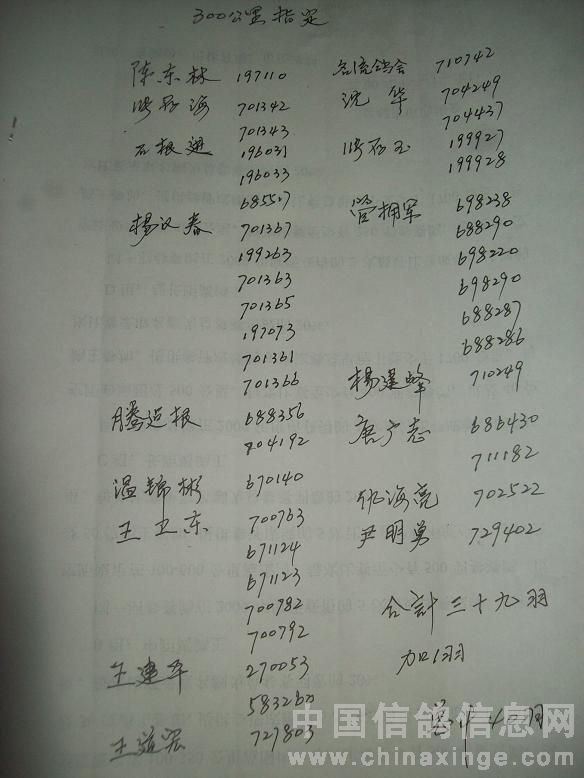 300公里指定
陈东林 197110
海 701342
701343
石根 196031
196033
685517
杨汉春 701367
199263
701363
701365
197073
701361
701366
滕道根 688356
804192
温锦彬 670140
王卫东 700763
671124
671123
700782
700792
王建平 270053
583260
王道宏 727803
名流鸽会 710742
沈华 704249
704437
199927
199928
管拥军 698238
688290
698220
698290
688287
688286
杨建峰 710249
唐广志 686430
711182
海亮 702522
尹明勇 729402
合計三十九羽
加1羽
40羽
中国信鸽信息网
www.chinaxinge.com